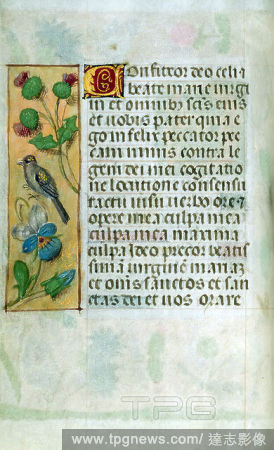 Confiteor deo celi
beate marie virgi
ni et omnibꝰ scis eius
et vobis pater quia e
go infelix peccator pec
caui nimis contra le
gem dei mei cogitatio
ne locutione consensu
tactu visu verbo ore et
opere mea culpa mea
culpa mea maxima
culpa Ideo precor beatis
simā virginē mariā z
et om̄s sanctos et san
ctas dei et vos orare
TPG
www.tpgnews.com / 達志影像